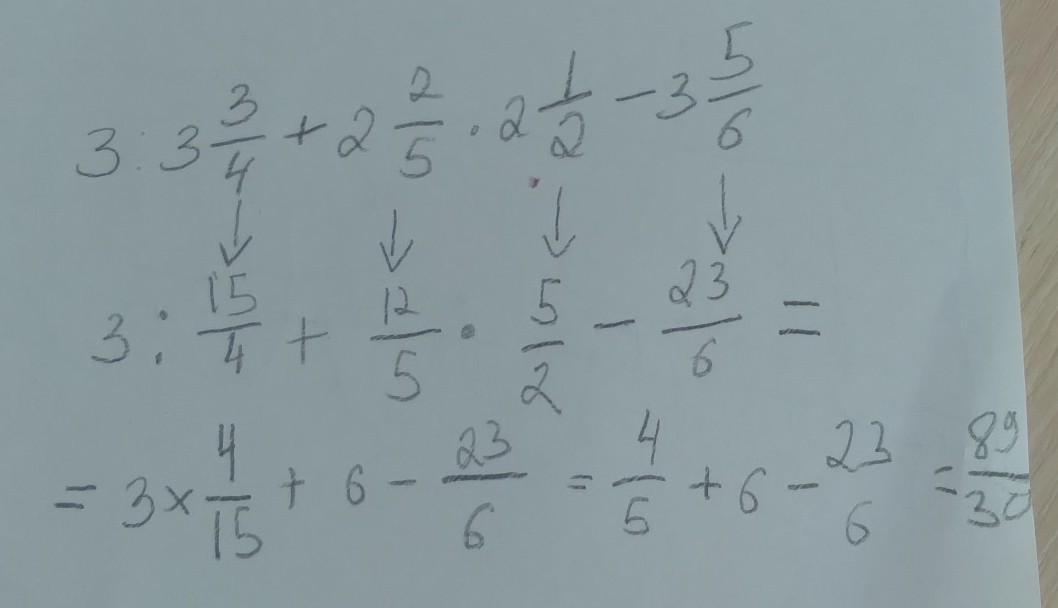 3 : 3 3/4 + 2 2/5 · 2 1/2 − 3 5/6
↓ ↓ ↓ ↓
3 : 15/4 + 12/5 · 5/2 − 23/6 =
= 3 × 4/15 + 6 − 23/6 = 4/5 + 6 − 23/6 = 89/30